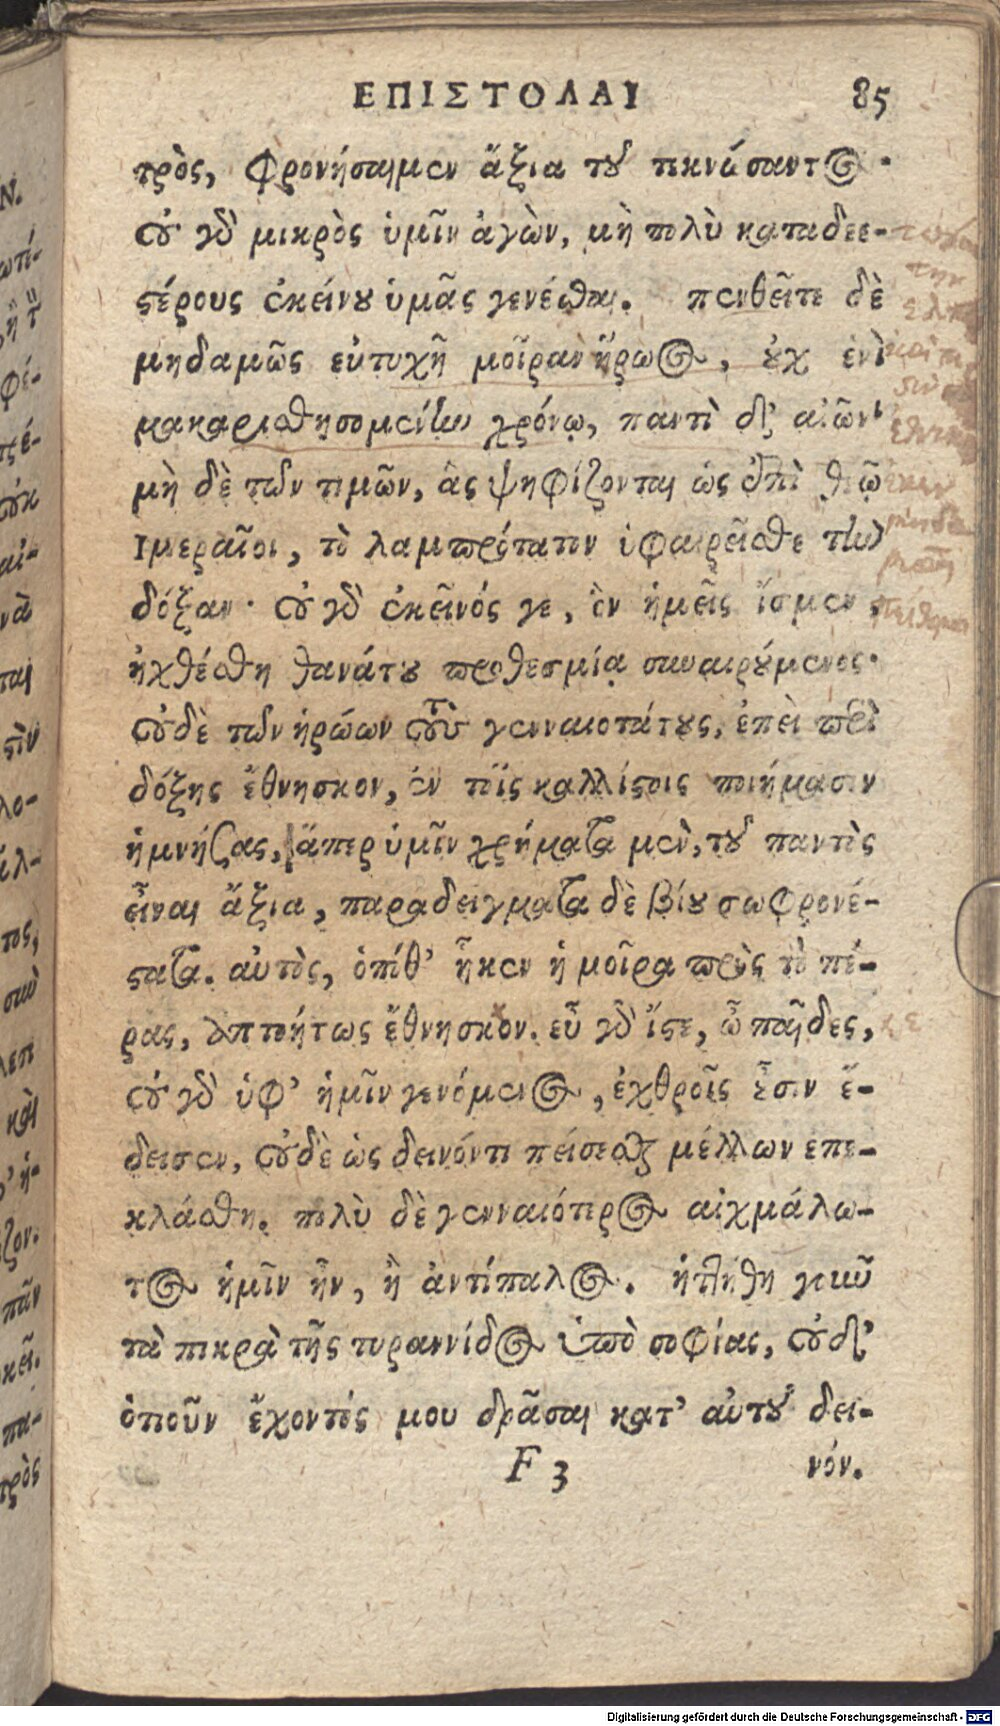 ΕΠΙΣΤΟΛΑΙ 85
τρὸς, φρονήσαιμεν ἄξια τοῦ τεκνώσαντος·
οὐ γὰρ μικρὸς ὑμῖν ἀγὼν, μὴ πολὺ καταδεε-
στέρους ἐκείνου ὑμᾶς γενέσθαι. πενθεῖτε δὲ
μηδαμῶς εὐτυχῆ μοῖραν ἥρωος, οὐχ ἑνὶ
μακαρισθησομένην χρόνῳ, παντὶ δ' αἰῶνι
μὴ δὲ τῶν τιμῶν, ἃς ψηφίζονται ὡς ἐπὶ θεῷ
Ἱμεραῖοι, τὸ λαμπρότατον ὑφαιρεῖσθε τὴν
δόξαν· οὐ γὰρ ἐκεῖνός γε, ὃν ἡμεῖς ἴσμεν,
ἠχθέσθη θανάτου προθεσμία συναιρούμενος·
οὐδὲ τῶν ἡρώων τοὺς γενναιοτάτους, ἐπεὶ περὶ
δόξης ἔθνησκον, ἐν τοῖς καλλίστοις ποιήμασιν
ἡμνήσας, ἅπερ ὑμῖν χρήματα μὲν, τοῦ παντὸς
εἶναι ἄξια, παραδείγματα δὲ βίου σωφρονέ-
στατα. αὐτὸς, ὁπόθ' ἧκεν ἡ μοῖρα πρὸς τὸ πέ-
ρας, ἀπτοήτως ἔθνησκον. εὖ γὰρ ἴστε, ὦ παῖδες,
οὐ γὰρ ὑφ' ἡμῖν γενόμενος, ἐχθροῖς οὖσιν ἔ-
δεισεν, οὐδὲ ὡς δεινόν τι πείσεσθαι μέλλων ἐπε-
κλάσθη. πολὺ δὲ γενναιότερος αἰχμάλω-
τος ἡμῖν ἦν, ἢ ἀντίπαλος. ἡττήθη γοῦν
τὰ πικρὰ τῆς τυραννίδος ὑπὸ σοφίας, οὐδ'
ὁτιοῦν ἔχοντός μου δρᾶσαι κατ' αὐτοῦ δει-
F 3 νόν.
Digitalisierung gefördert durch die Deutsche Forschungsgemeinschaft - DFG